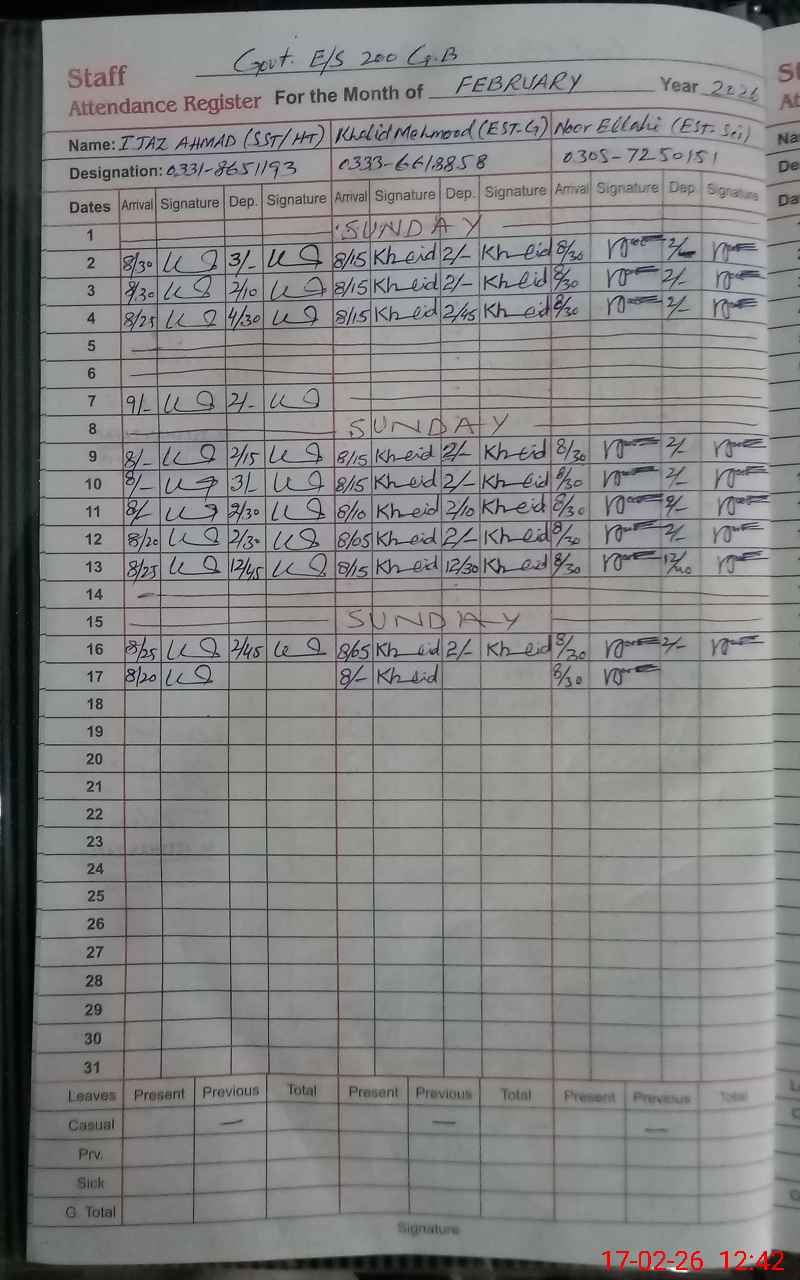 Govt. E/S 200 G.B
Staff
Attendance Register For the Month of FEBRUARY Year 2026
Name: IJAZ AHMAD (SST/HT) Khalid Mehmood (EST-G) Noor Ellahi (EST-Sci)
Designation: 0331-8651193 0333-6618858 0305-7250151
Dates Arrival Signature Dep. Signature Arrival Signature Dep. Signature Arrival Signature Dep. Signature
1 SUNDAY
2 8/30 3/- 8/15 Kheid 2/- Kheid 8/30 2/-
3 8/30 2/10 8/15 Kheid 2/- Kheid 8/30 2/-
4 8/25 4/30 8/15 Kheid 2/45 Kheid 8/30 2/-
5
6
7 9/- 2/-
8 SUNDAY
9 8/- 2/15 8/15 Kheid 2/- Kheid 8/30 2/-
10 8/- 3/- 8/15 Kheid 2/- Kheid 8/30 2/-
11 8/- 2/30 8/10 Kheid 2/10 Kheid 8/30
12 8/20 2/30 Kheid 2/- Kheid 8/30 2/-
13 8/25 12/45 8/15 Kheid 12/30 Kheid 8/30
14
15 SUNDAY
16 8/25 2/45 Kheid 2/- Kheid 8/30 2/-
17 8/20 8/- Kheid 8/30
18
19
20
21
22
23
24
25
26
27
28
29
30
31
Leaves Present Previous Total Present Previous Total Present Previous Total
Casual — — —
Prv.
Sick
G. Total
Signature
17-02-26 12:42